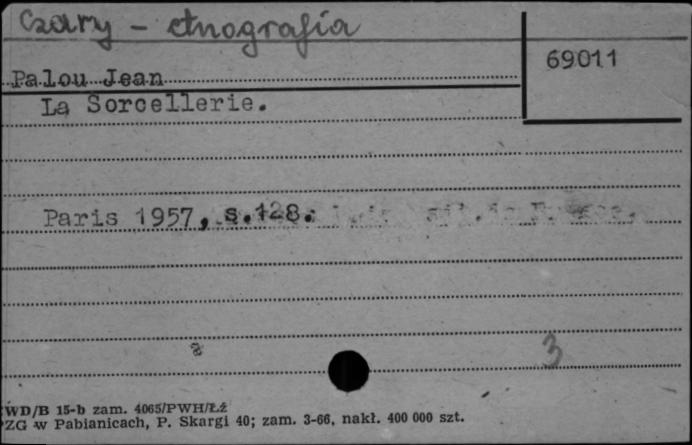 Czary - etnografia
69011
Palou Jean
La Sorcellerie.
Paris 1957, s.128.
3
WD/B 15-b zam. 4065/PWH/Łź
PZG w Pabianicach, P. Skargi 40; zam. 3-66, nakł. 400 000 szt.